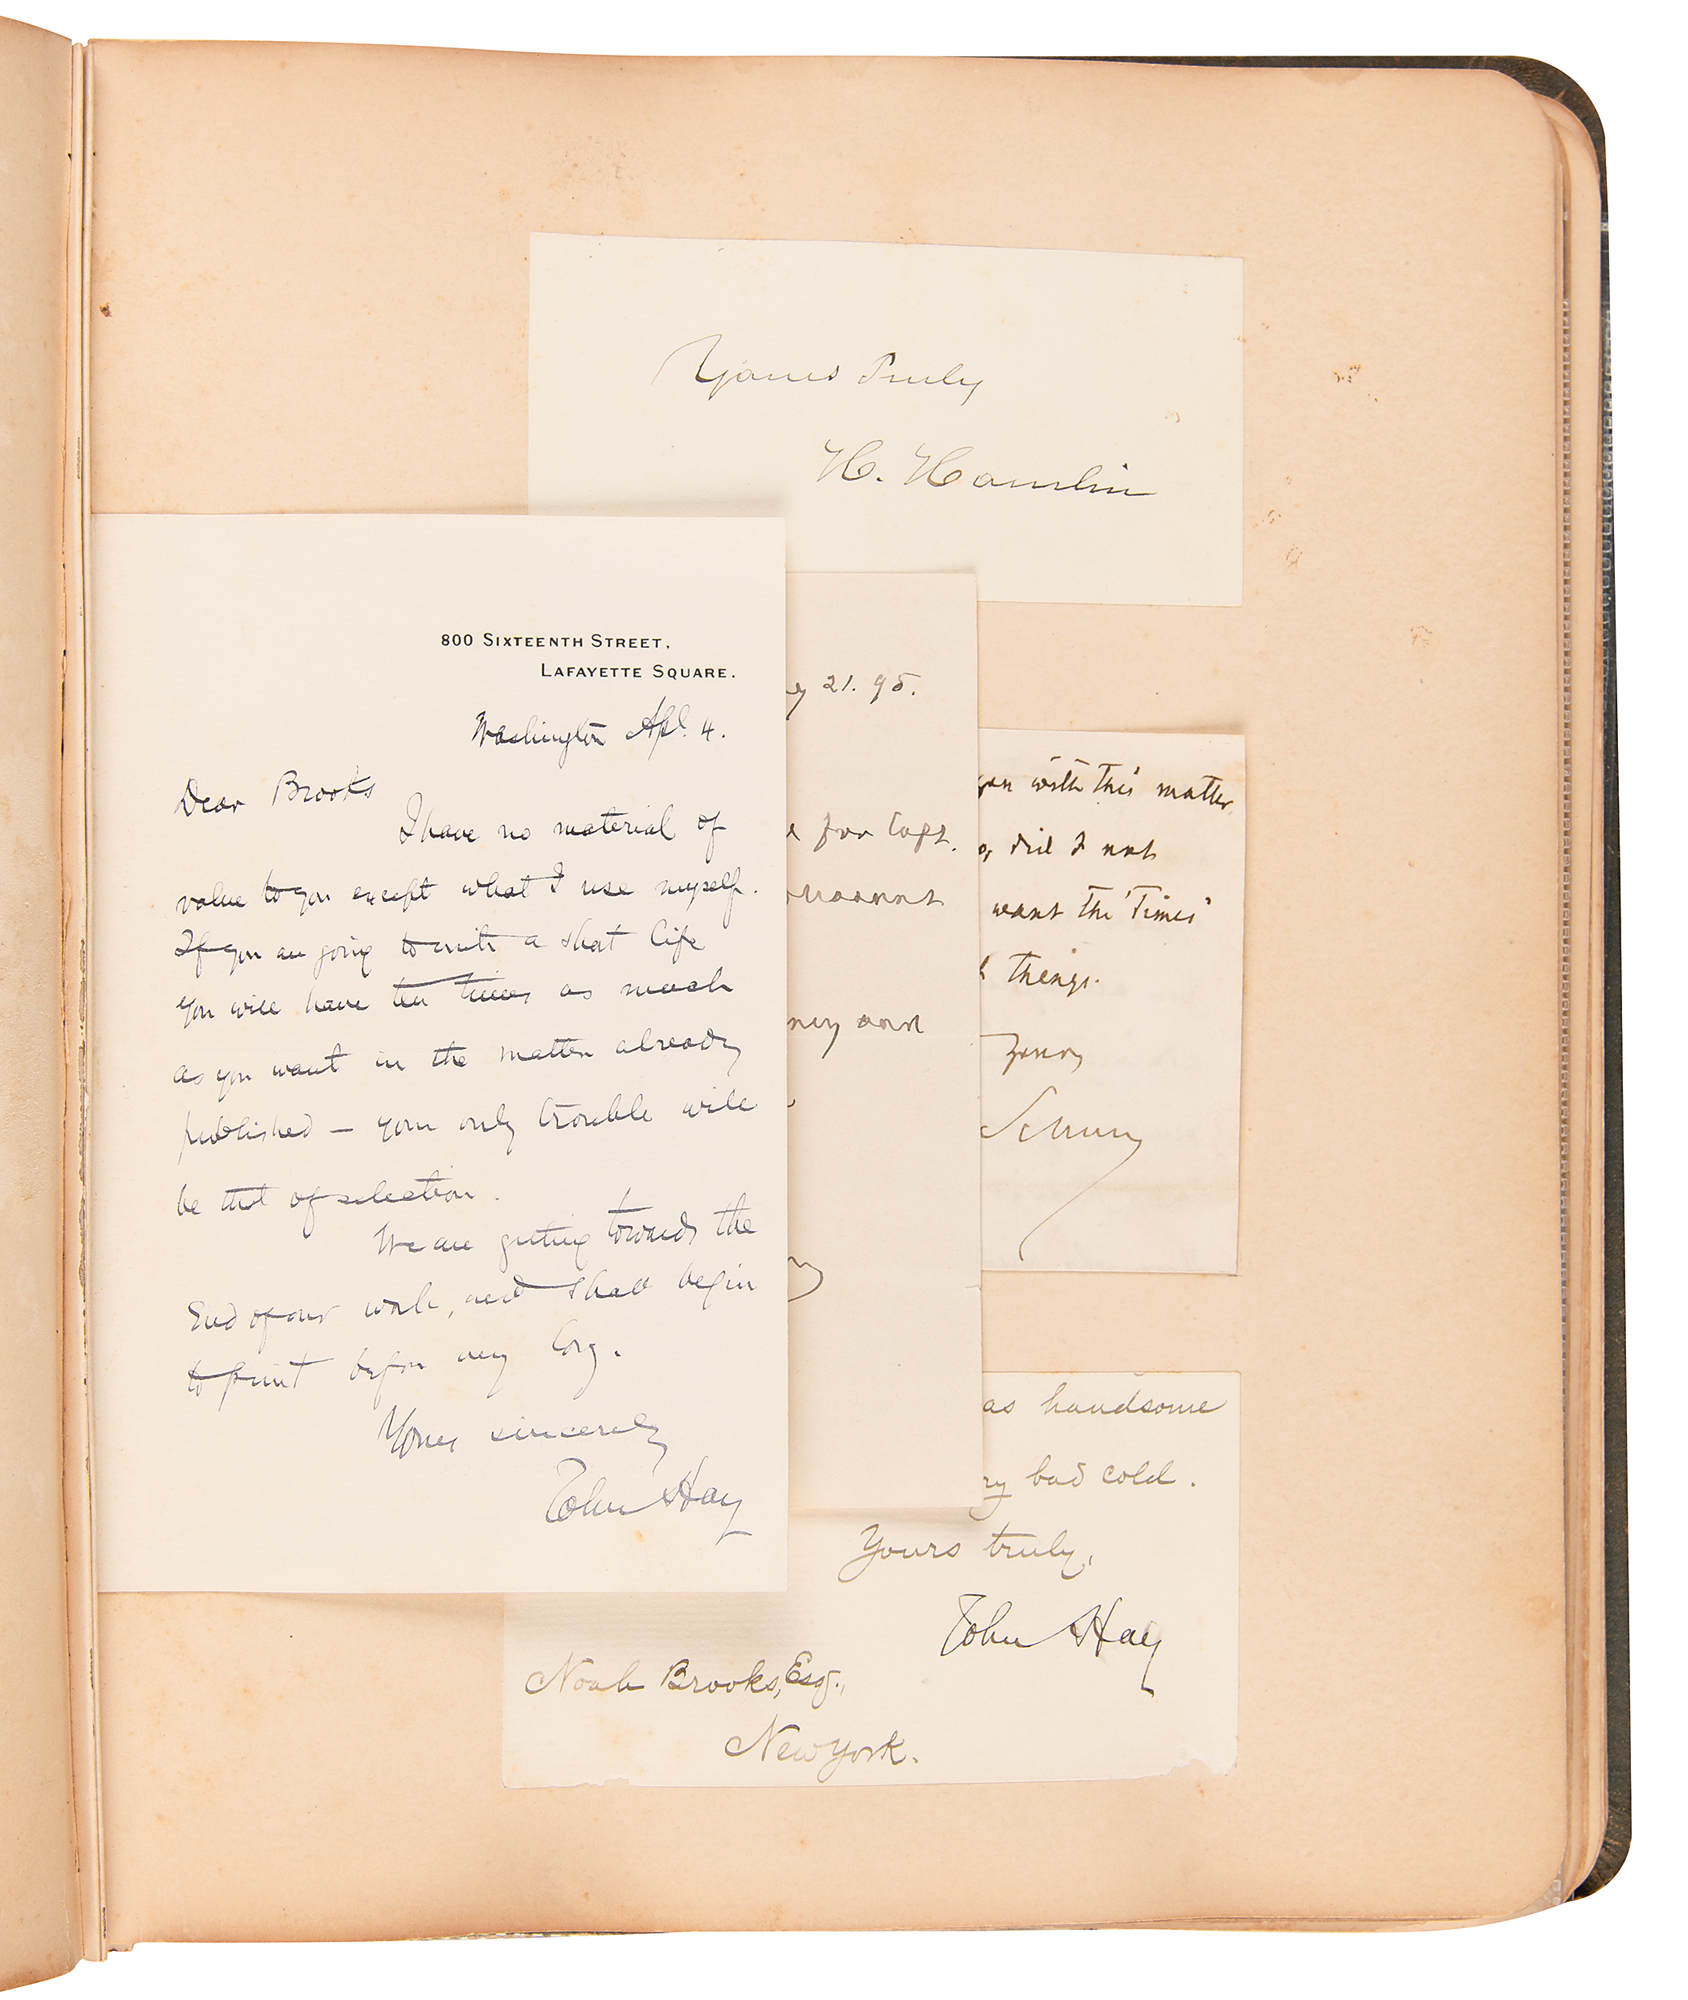 Yours Truly
H. Hamlin
800 Sixteenth Street,
Lafayette Square.
Washington Apl. 4.
Dear Brooks
I have no material of
value to you except what I use myself.
If you are going to write a short life
you will have ten times as much
as you want in the matter already
published — your only trouble will
be that of selection.
We are getting towards the
End of our work, and shall begin
to print before very long.
Yours sincerely
John Hay
21. 95.
for Capt.
and
with this matter
did I not
want the 'Times'
things.
Schurz
as handsome
bad cold.
Yours truly,
John Hay
Noah Brooks, Esq.,
New York.